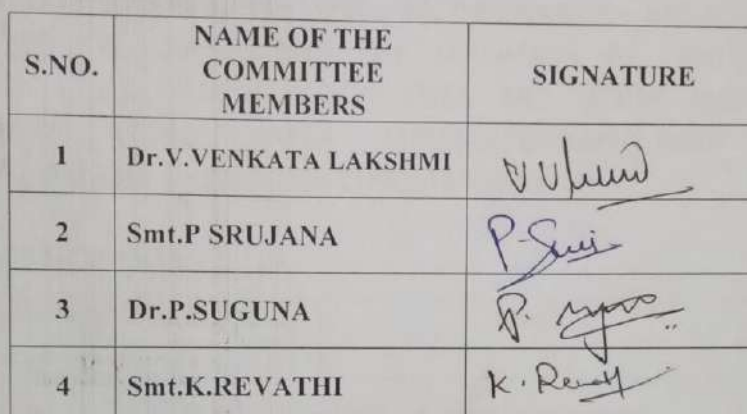 S.NO. NAME OF THE COMMITTEE MEMBERS SIGNATURE
1 Dr.V.VENKATA LAKSHMI
2 Smt.P SRUJANA
3 Dr.P.SUGUNA
4 Smt.K.REVATHI